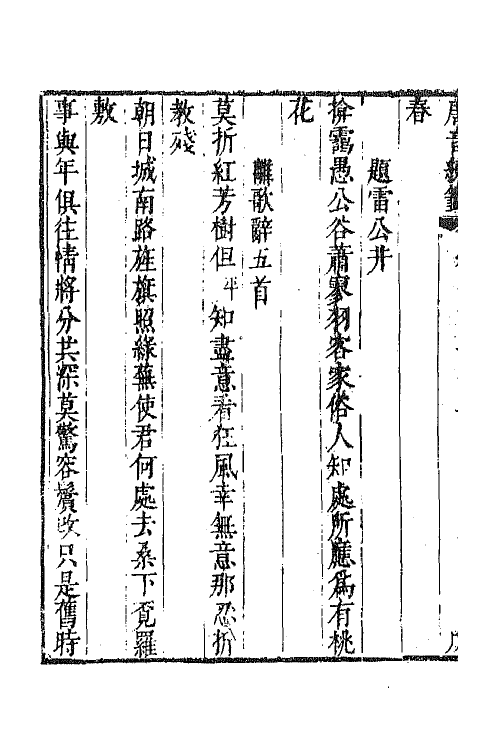 唐音統籤
春
題雷公井
揜靄愚公谷蕭寥羽客家俗人知處所應為有桃
花
離歌辭五首
莫折紅芳樹但平知盡意看狂風幸無意那忍折
教殘
朝日城南路旌旗照綠蕪使君何處去桑下覓羅
敷
事與年俱往情將分共深莫驚容鬢改只是舊時